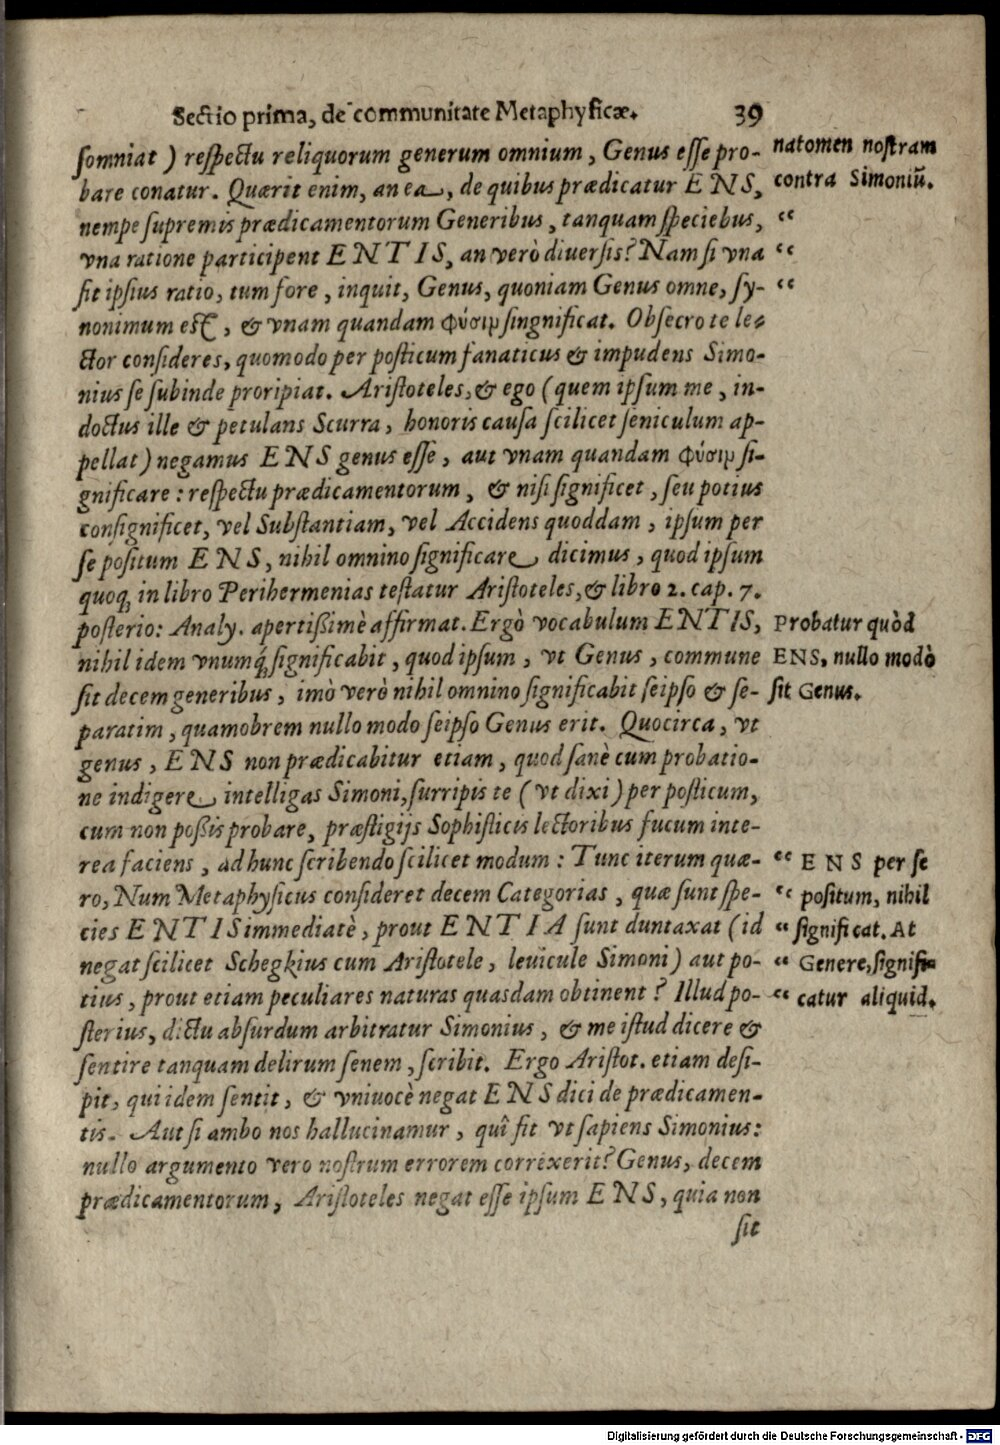 Sectio prima, de communitate Metaphysicæ. 39
somniat ) respectu reliquorum generum omnium, Genus esse pro-
bare conatur. Quærit enim, an ea, de quibus prædicatur ENS,
nempe supremis prædicamentorum Generibus, tanquam speciebus,
vna ratione participent ENTIS, an verò diuersis? Nam si vna
sit ipsius ratio, tum fore, inquit, Genus, quoniam Genus omne, sy-
nonimum est, & vnam quandam φύσιμ singnificat. Obsecro te le-
ctor consideres, quomodo per posticum fanaticus & impudens Simo-
nius se subinde proripiat. Aristoteles, & ego ( quem ipsum me, in-
doctus ille & petulans Scurra, honoris causa scilicet seniculum ap-
pellat ) negamus ENS genus esse, aut vnam quandam φύσιμ si-
gnificare: respectu prædicamentorum, & nisi significet, seu potius
consignificet, vel Substantiam, vel Accidens quoddam, ipsum per
se positum ENS, nihil omnino significare dicimus, quod ipsum
quoq́; in libro Perihermenias testatur Aristoteles, & libro 2. cap. 7.
posterio: Analy. apertißimè affirmat. Ergò vocabulum ENTIS,
nihil idem vnumq́; significabit, quod ipsum, vt Genus, commune
sit decem generibus, imò verò nihil omnino significabit seipso & se-
paratim, quamobrem nullo modo seipso Genus erit. Quocirca, vt
genus, ENS non prædicabitur etiam, quod sanè cum probatio-
ne indigere intelligas Simoni, surripis te ( vt dixi ) per posticum,
cum non poßis probare, præstigijs Sophisticis lectoribus fucum inte-
rea faciens, ad hunc scribendo scilicet modum: Tunc iterum quæ-
ro, Num Metaphysicus consideret decem Categorias, quæ sunt spe-
cies ENTIS immediatè, prout ENTIA sunt duntaxat ( id
negat scilicet Schegkius cum Aristotele, leuicule Simoni ) aut po-
tius, prout etiam peculiares naturas quasdam obtinent? Illud po-
sterius, dictu absurdum arbitratur Simonius, & me istud dicere &
sentire tanquam delirum senem, scribit. Ergo Aristot. etiam desi-
pit, qui idem sentit, & vniuocè negat ENS dici de prædicamen-
tis. Aut si ambo nos hallucinamur, quî fit vt sapiens Simonius:
nullo argumento vero nostrum errorem correxerit? Genus, decem
prædicamentorum, Aristoteles negat esse ipsum ENS, quia non
sit
natomen nostram
contra Simoniũ.
“
“
“
Probatur quòd
ENS, nullo modò
sit Genus.
“ ENS per se
“ positum, nihil
“ significat. At
“ Genere, signifi-
“ catur aliquid.
Digitalisierung gefördert durch die Deutsche Forschungsgemeinschaft - DFG